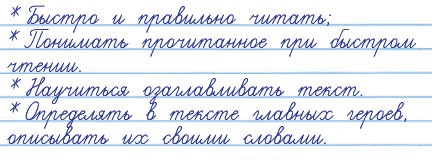 * Быстро и правильно читать;
* Понимать прочитанное при быстром
чтении.
* Научиться озаглавливать текст.
* Определять в тексте главных героев,
описывать их своими словами.